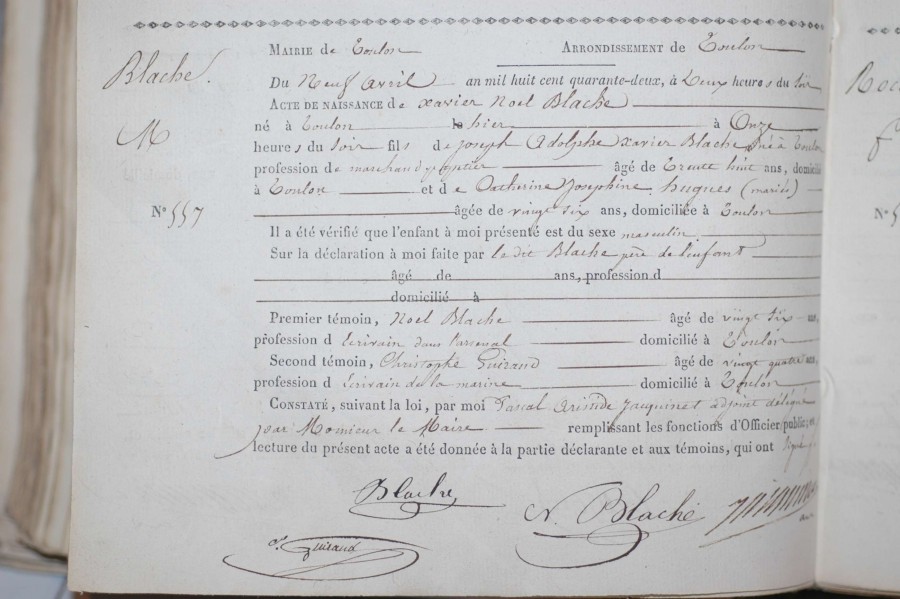 Mairie de Toulon Arrondissement de Toulon
Blache. Du Neuf avril an mil huit cent quarante-deux, à Deux heures du soir
Acte de naissance de xavier Noel Blache
M né à Toulon hier à Onze
heures du soir fils de joseph Adolphe xavier Blache, né à Toulon
profession de marchand âgé de Trente huit ans, domicilié
à Toulon et de Catherine Josephine hugues (mariés)
N° 557 âgée de vingt six ans, domiciliée à Toulon
Il a été vérifié que l'enfant à moi présenté est du sexe masculin
Sur la déclaration à moi faite par le dit Blache père de l'enfant
âgé de ans, profession d
domicilié à
Premier témoin, Noel Blache âgé de vingt six ans,
profession d Ecrivain dans l'arsenal domicilié à Toulon
Second témoin, Christophe Guiraud âgé de vingt quatre ans,
profession d Ecrivain de la marine domicilié à Toulon
Constaté, suivant la loi, par moi Pascal Aristide Jacquinet adjoint délégué
par Monsieur le Maire remplissant les fonctions d'Officier public;
lecture du présent acte a été donnée à la partie déclarante et aux témoins, qui ont signé
Blache
N. Blache
Guiraud